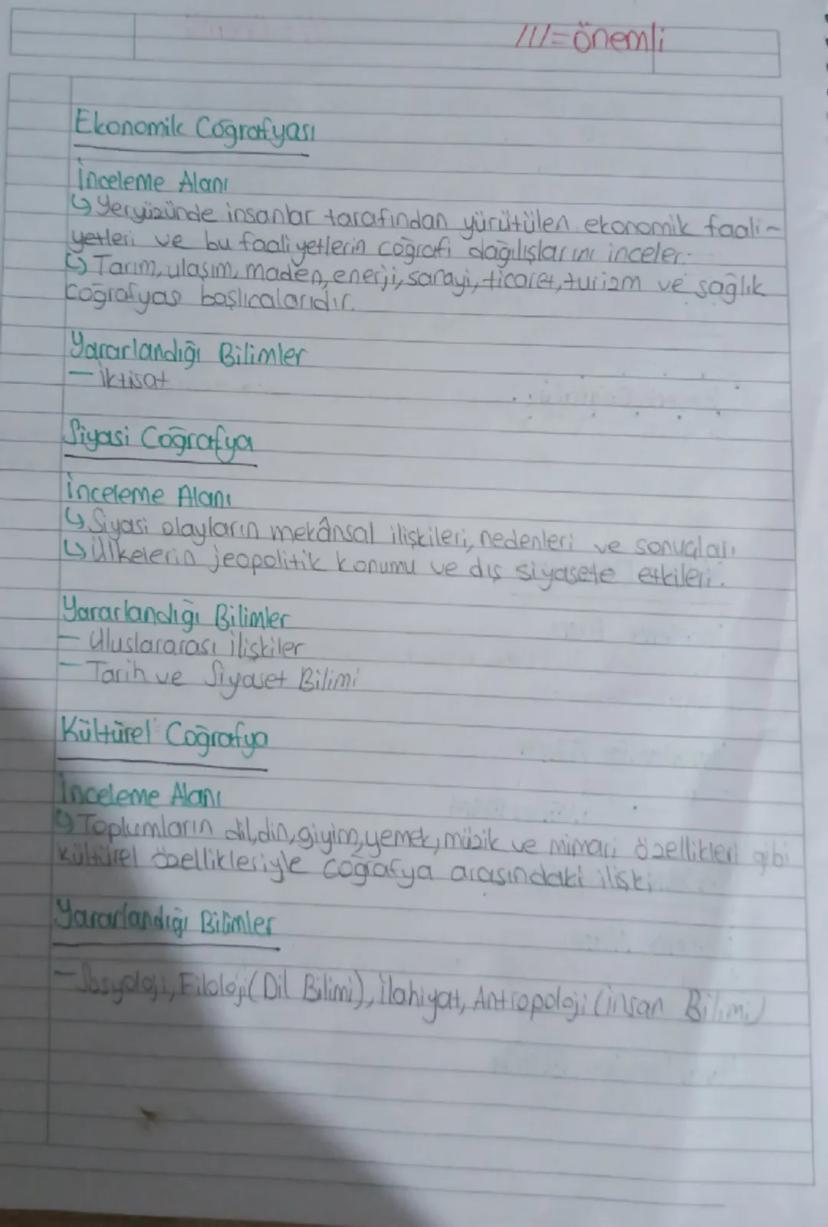 ///=önemli
Ekonomik Coğrafyası
İnceleme Alanı
↳ Yeryüzünde insanlar tarafından yürütülen ekonomik faali-
yetleri ve bu faaliyetlerin coğrafi dağılışlarını inceler.
↳ Tarım, ulaşım, maden, enerji, sanayi, ticaret, turizm ve sağlık
coğrafyas başlıcalarıdır.
Yararlandığı Bilimler
— İktisat
Siyasi Coğrafya
İnceleme Alanı
↳ Siyasi olayların mekânsal ilişkileri, nedenleri ve sonuçları.
↳ Ülkelerin jeopolitik konumu ve dış siyasete etkileri.
Yararlandığı Bilimler
— Uluslararası ilişkiler
— Tarih ve Siyaset Bilimi
Kültürel Coğrafya
İnceleme Alanı
↳ Toplumların dil, din, giyim, yemek, müzik ve mimari özellikleri gibi
kültürel özellikleriyle coğrafya arasındaki ilişki
Yararlandığı Bilimler
— Sosyoloji, Filoloji (Dil Bilimi), İlahiyat, Antropoloji (insan Bilimi)